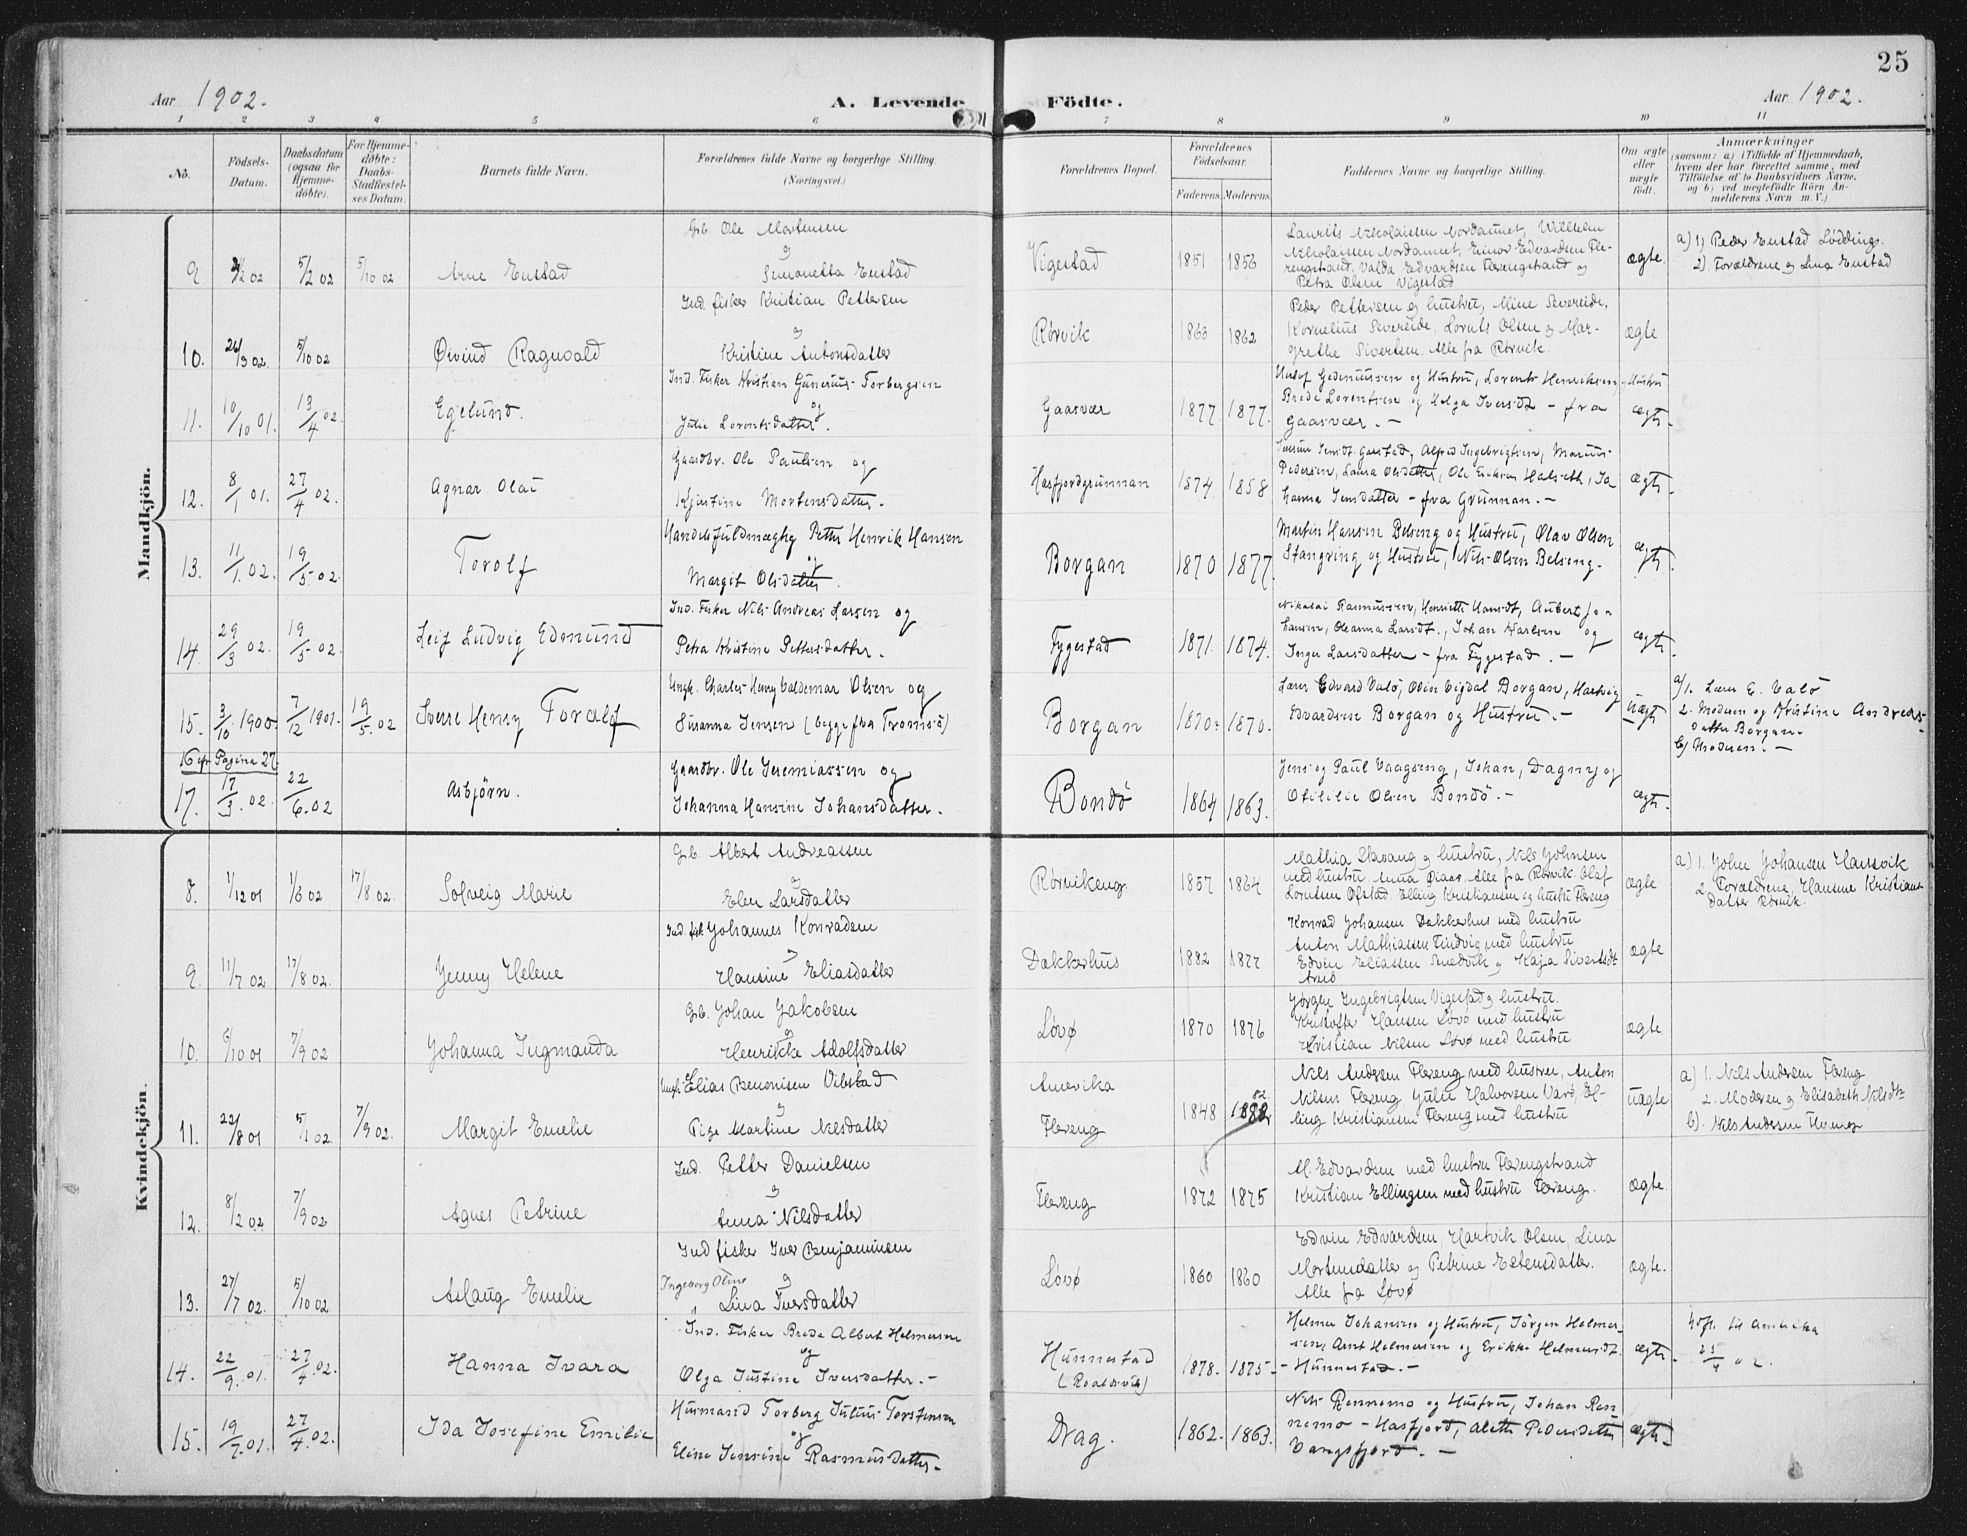 25
Aar 1902.
A. Levende
Födte.
Aar 1902.
1 2 3 4 5 6 7 8 9 10 11
No.
Födsels-Datum.
Daabsdatum (ogsaa for Hjemmedöbte).
For Hjemmedöbte: Daabs-Stadfæstelses Datum.
Barnets fulde Navn.
Forældrenes fulde Navne og borgerlige Stilling. (Næringsvei.)
Forældrenes Bopæl.
Forældrenes Födselsaar.
Faderens. Moderens.
Faddernes Navne og borgerlige Stilling.
Om ægte eller uægte födt.
Anmærkninger
(saasom: a) i Tilfælde af Hjemmedaab, hvem der har forrettet samme, med Tilföielse af to Daabsvidners Navne, og b) ved uægtefödte Börn Anmelderens Navn m. V.)
Mandkjön.
9 2/2 02 5/2 02 5/10 02 Arne Enstad
Grb. Ole Mortensen
og
Simonetta Enstad
Vigestad 1851 1856
Laurits Nikolaisen Nordaunet, Wilhelm
Nikolaisen Nordaunet, Einor Edvardsen Fle-
rengstrand, Valda Edvardsen Flerengstrand og
Petra Olsen Vigestad
ægte
a) 1) Peder Enstad Lödding.
2) Forældrene og Lina Enstad
10. 26/3 02. 5/10 02 Øivind Ragnvald
Ind. fisker Kristian Pettersen
og
Kristine Antonsdatter
Rørvik 1863 1862
Peder Pettersen og hustru, Mine Severeide,
Kornelius Severeide, Lornts Olsen og Mar-
grethe Sivertsen. Alle fra Rørvik.
ægte
11. 10/10 01. 13/4 02. Egelund.
Ind. Fisker Kristian Gunerius Torbergsen
og
Julie Lorentsdatter.
Gaasvær 1877 1877.
Gedemussen og Hustru, Lorents Henriksen, og Hustru
Brede Lorentsen og Helga Iversdt – fra
Gaasvær. –
ægte.
12. 8/1 01. 27/4 02. Agnar Olai
Gaardbr. Ole Paulsen og
Kjerstine Mortensdatter.
Hasfjordgrunnan 1874. 1858
Jensdt. Garstad, Alfred Ingebrigtsen, Marius
Pedersen, Laura Olsdatter, Ole Eriksen Halseth, Jo
hanna Jensdatter – fra Grunnan. –
ægte.
13. 11/1. 02. 19/5 02. Torolf
Handelsfuldmægtig Petter Henrik Hansen
og
Margit Olsdatter.
Borgan 1870 1877.
Martin Hansen Belseng og Hustru, Olav Olsen
Stangring og Hustru, Nils Olsen Belseng.
ægte.
14. 29/3 02. 19/5 02. Leif Ludvig Edmund
Ind. Fisker Nils Andreas Larsen og
Petra Kristine Pettersdatter.
Fygestad 1871. 1874.
Nikolai Rasmussen, Henriette Hansdt, Aubert Jo-
hansen, Oleanna Larsdt., Johan Karlsen og
Inger Larsdatter – fra Fygestad. –
ægte.
15. 3/10 1900. 7/12 1901. 19/5. 02 Sverre Henry Toralf
Ungk. Charles Henry Valdemar Olsen og
Susanna Jensen (begge fra Tromsö)
Borgan 1870. 1870.
Lærer Edvard Valö, Odin Vigdal Borgan, Hartvig
Edvardsen Borgan og Hustru. –
uægte
a/1. Lærer E. Valö
2. Moderen og Kristine Andreas-
datter Borgan.
b/ Moderen. –
16 cfr. Pagina 27.
17. 17/3. 02. 22/6. 02 Asbjörn.
Gaardbr. Ole Jeremiassen og
Johanna Hansine Johansdatter.
Bondö 1864 1863.
Jens og Paul Vaagseng, Johan, Dagny og
Otilie Olsen Bondö. –
ægte.
Kvindekjön.
8. 1/12 01 1/6 02 17/8 02. Solveig Marie
Grb. Albert Andreassen
og
Elen Larsdatter
Rørvikeng. 1857 1864
Mathia Haraug og hustru, Nils Johnsen
med hustru Anna Alle fra Rørvik. Olaf
Lorntsen Ofstad, Elling Kristiansen og hustru Flereng
ægte
a) 1. John Johansen Hansvik
2. Forældrene, Hansine Kristians
datter Rørvik.
9. 11/7 02 17/8 02. Jenny Helene
Ind. fisk. Johannes Konradsen
og
Hansine Eliasdatter
Dekkerhus 1882 1877
Konrad Johansen Dekkerhus med hustru
Anton Mathiassen Tindvig med hustru
Edvin Eliassen Smedvik og Kaja Sivertsdt
ægte
10. 9/10 01 7/9 02 Johanna Ingmanda
Grb. Johan Jakobsen
og
Henrikka Adolfsdatter
Løvø 1870 1876
Jørgen Ingebrigtsen Vigestad og hustru.
Kristoffer Hansen Løvø med hustru
Kristian Nilsen Løvø med hustru
ægte
11. 22/8 01 5/1 02. 7/9 02. Margit Emelie
Ungk. Elias Benonisen Vikstad
og
Pige Martine Nilsdatter
Amerika
Flereng 1848 1882
82
Nils Andersen Flereng med hustru, Anton
Nilsen Flereng, Julie Halvorsen Varø, El-
ling Kristiansen Flereng med hustru
uægte
a) 1. Nils Andersen Flereng
2. Moderen og Elisabeth Nilsdt
b). Nils Andersen Flereng
12. 8/2 02 7/9 02 Agnes Petrine
Ind. Petter Danielsen
og
Anna Nilsdatter
Flereng 1872 1875
M. Edvardsen med hustru Flerengstrand
Kristian Ellingsen med hustru Flereng.
ægte.
13. 27/7 02. 5/10 02 Aslaug Emelie
Ind fisker Iver Benjaminsen
Ingeborg Oline og
Lina Iversdatter
Løvø 1860 1860
Edvin Edvardsen, Hartvik Olsen, Lina
Mortensdatter og Petrine Estensdatter.
Alle fra Løvø
ægte.
14. 22/9. 01. 27/4. 02. Hanna Ivara
Ind. Fisker Brede Albert Helmersen
og
Olga Justine Iversdatter. –
Hunnestad
(Roaldsvik) 1878. 1875
Helmer Johansen og Hustru, Jörgen Helmer-
sen, Arnt Helmersen og Erikke Helmersdt.
– Hunnestad. –
ægte.
Utfl. til Amerika
25/4 02.
15. 19/7. 01. 27/4. 02. Ida Josefine Emilie
Husmand Torberg Julius Torstensen
og
Eline Jensine Rasmusdatter.
Drag. 1862. 1863.
Nils Rennemo og Hustru, Johan Ren-
nemo – Hasfjord, Aleth Pedersdatter
Vangsfjord. –
ægte.